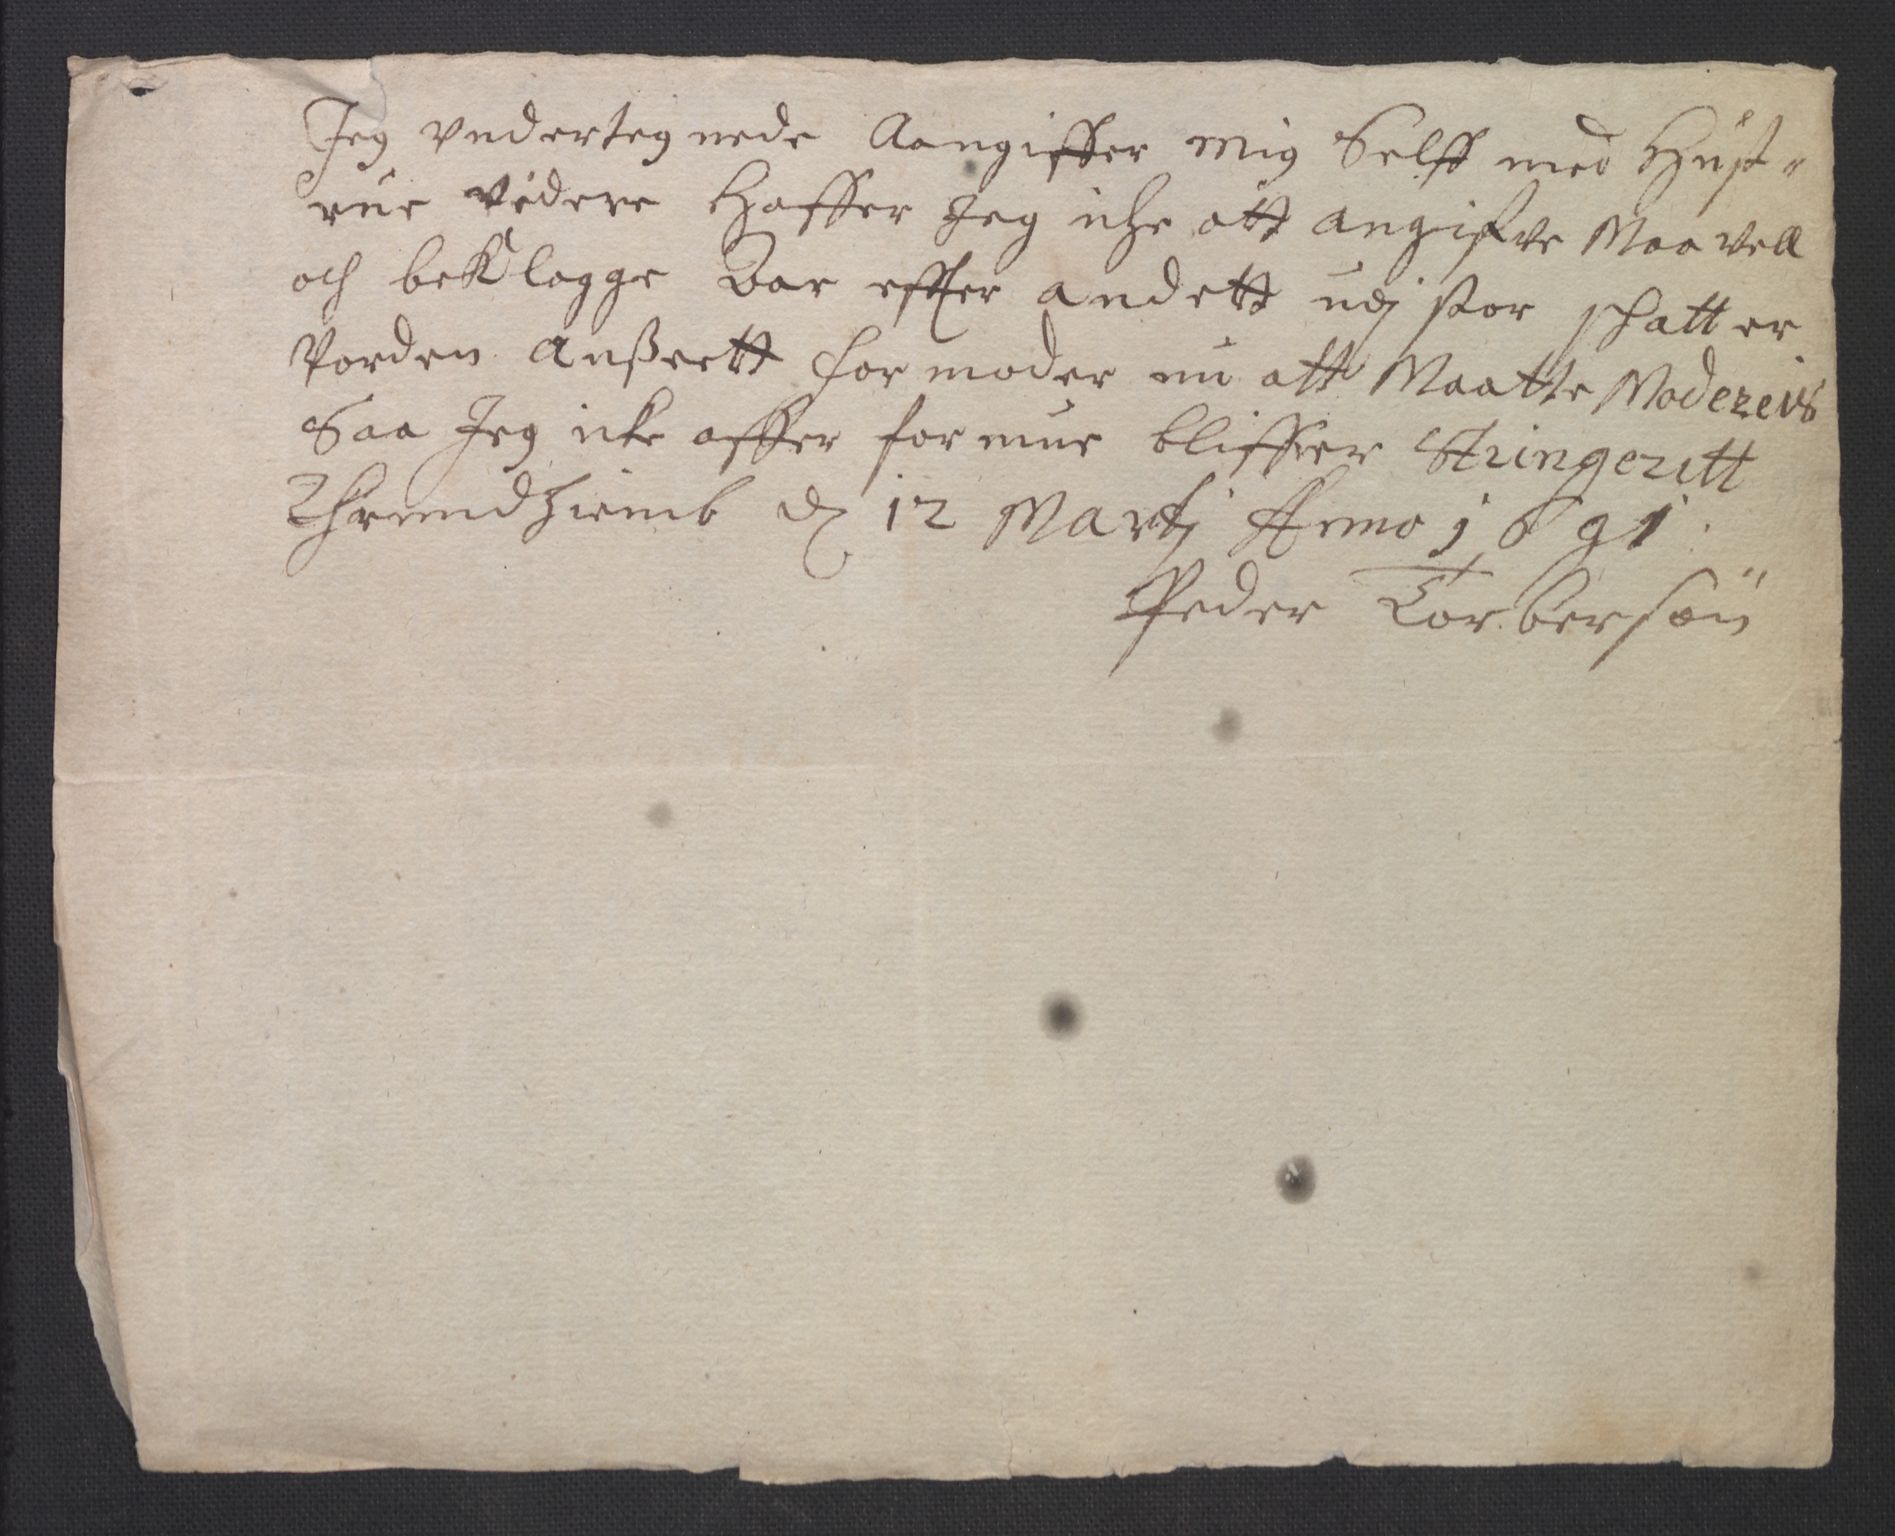 Jeg vndertegnede Aangiffer mig Selff med Hust-
rue videre Haffer Jeg iche att angifve Maa vell
och beKlagge Var effter andett udj stor schatt er
Vorden Anßeett formoder nu att Maatte Moderers
Saa Jeg icke offver formue bliffver Stringerett
Thrundhiemb d 12 Martj Anno 1691.
Peder Torbersøn